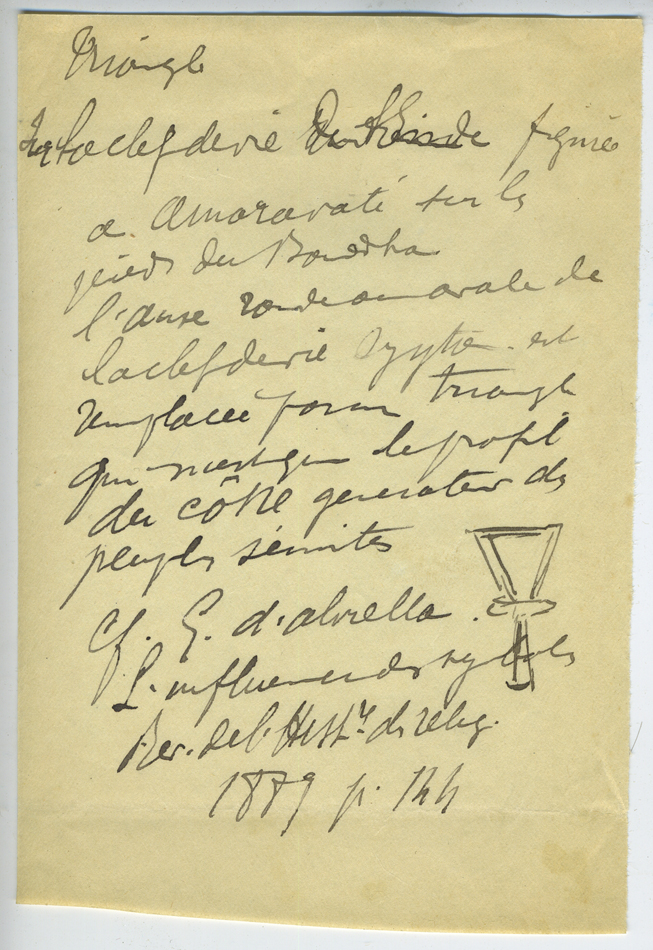 Triangle
la clef de vie figurée
a Amaravati sur les
pieds du Bouddha
l'anse ronde ou ovale de
la clef de vie est
remplacée par un triangle
qui le profil
du cône generateur des
peuples sémites
cf. G. d'alviella.
L'influence des symboles
Rev. de l'Hist.re des relig.
1889 p. 144